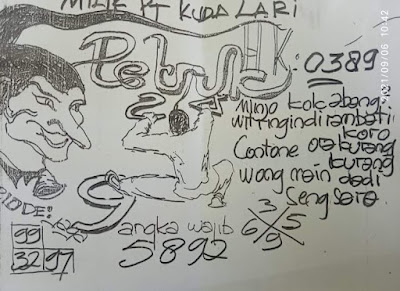 MILIK PT KUDA LARI
Petruk
: 0389
Minjo kolcabang
witringin di rambati
koro
Contone ora kurang
kurang
wong main dadi
seng soro
angka wajib
5892
3
6 5
9
99
32 97
2021/09/06 10:42